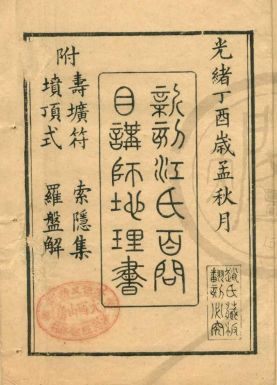 光緒丁酉歲孟秋月
新刻江氏百問
目講師地理書
附
壽壙符　索隱集
墳頂式　羅盤解